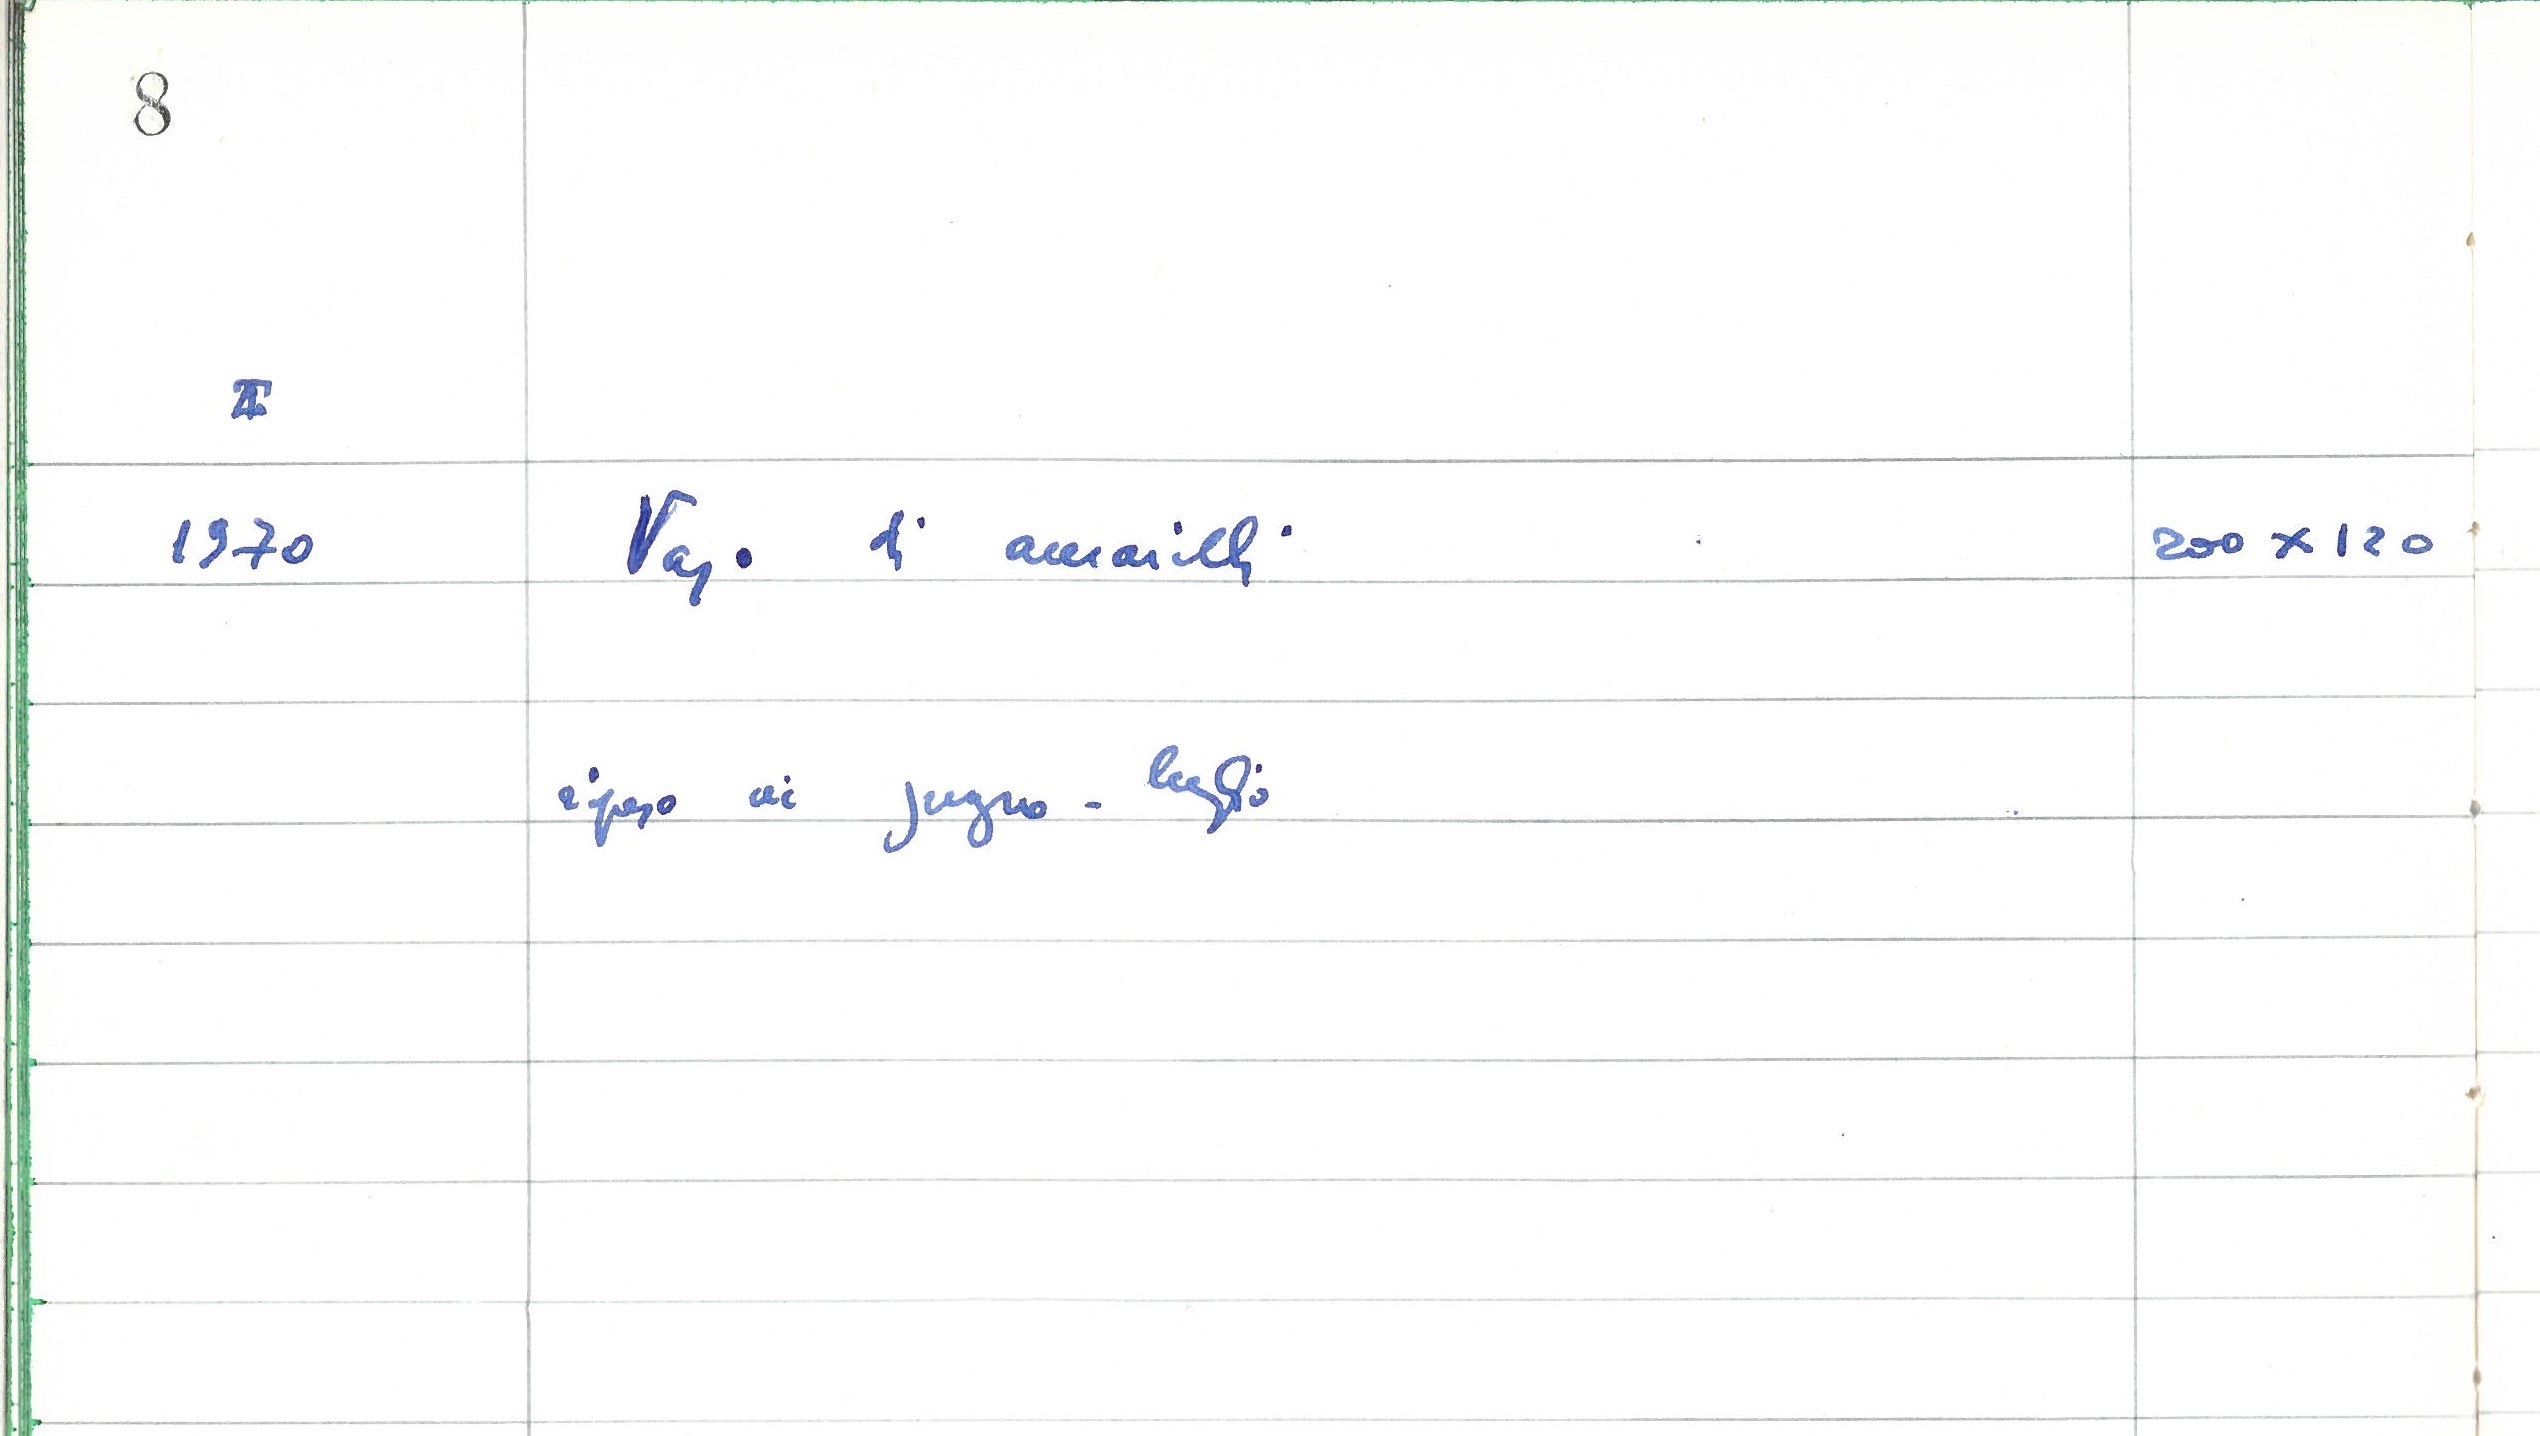 8
1970 Vaso di amarilli 200 x 120
ripreso in giugno - luglio